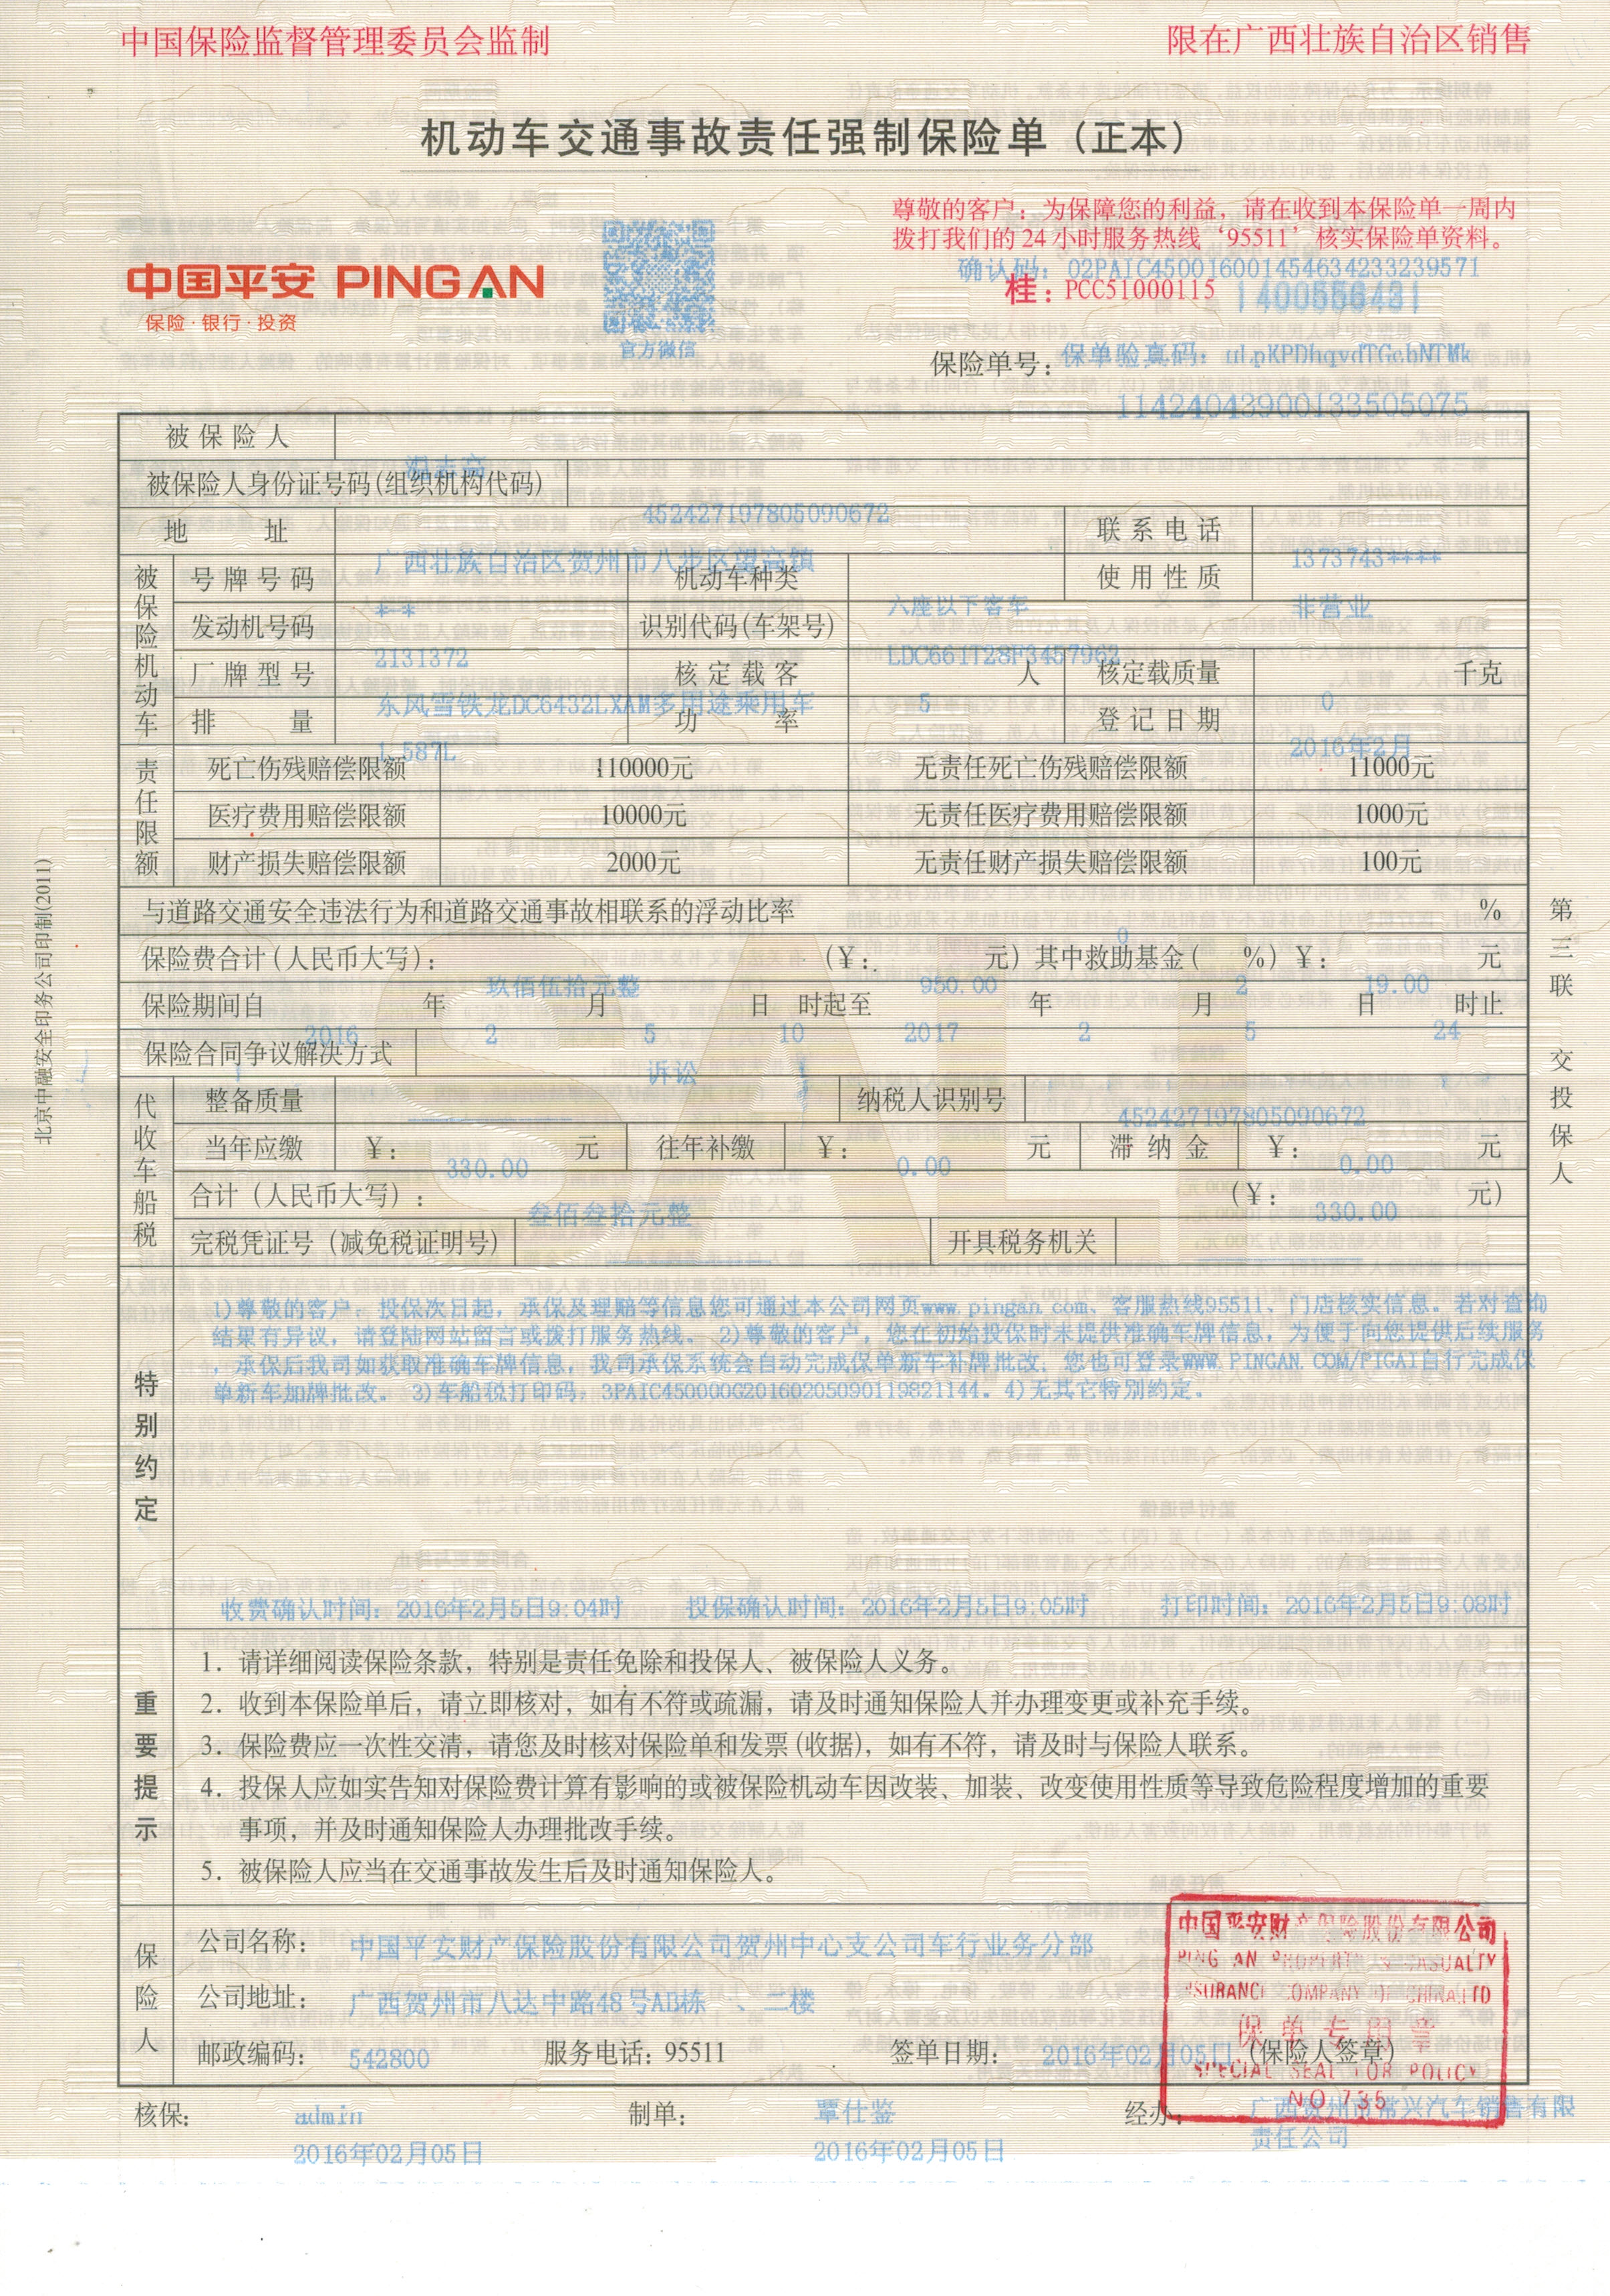 中国保险监督管理委员会监制
限在广西壮族自治区销售
机动车交通事故责任强制保险单（正本）
尊敬的客户：为保障您的利益，请在收到本保险单一周内
拨打我们的24小时服务热线‘95511’核实保险单资料。
中国平安 PING AN
保险·银行·投资
官方微信
确认码：02PAIC450016001454634233239571
桂：PCC51000115 1400556431
保险单号：
保单验真码：
11424043900133505075
被保险人
被保险人身份证号码(组织机构代码)
452427197805090672
地 址
广西壮族自治区贺州市八步区望高镇
联系电话
1373743****
被保险机动车
号牌号码
**
机动车种类
六座以下客车
使用性质
非营业
发动机号码
2131372
识别代码(车架号)
LDC661T28F3457962
厂牌型号
东风雪铁龙DC6432LXAM多用途乘用车
核定载客
5
人
核定载质量
0
千克
排 量
1.587L
功 率
登记日期
2016年2月
责任限额
死亡伤残赔偿限额 110000元 无责任死亡伤残赔偿限额 11000元
医疗费用赔偿限额 10000元 无责任医疗费用赔偿限额 1000元
财产损失赔偿限额 2000元 无责任财产损失赔偿限额 100元
与道路交通安全违法行为和道路交通事故相联系的浮动比率 0 %
保险费合计(人民币大写)： 玖佰伍拾元整 (¥： 950.00 元) 其中救助基金( 2 %) ¥： 19.00 元
保险期间自 2016 年 2 月 5 日 10 时起至 2017 年 2 月 5 日 24 时止
保险合同争议解决方式 诉讼
代收车船税
整备质量
纳税人识别号 452427197805090672
当年应缴 ¥： 330.00 元 往年补缴 ¥： 0.00 元 滞纳金 ¥： 0.00 元
合计（人民币大写）： 叁佰叁拾元整 (¥： 330.00 元)
完税凭证号（减免税证明号） 开具税务机关
特别约定
1)尊敬的客户：投保次日起，承保及理赔等信息您可通过本公司网页www.pingan.com、客服热线95511、门店核实信息。若对查询
结果有异议，请登陆网站留言或拨打服务热线。 2)尊敬的客户，您在初始投保时未提供准确车牌信息，为便于向您提供后续服务
，承保后我司如获取准确车牌信息，我司承保系统会自动完成保单新车补牌批改；您也可登录WWW.PINGAN.COM/PIGAI自行完成保
单新车加牌批改。 3)车船税打印码：3PAIC450000G20160205090119821144。4)无其它特别约定。
收费确认时间：2016年2月5日9:04时 投保确认时间：2016年2月5日9:05时 打印时间：2016年2月5日9:08时
重要提示
1. 请详细阅读保险条款，特别是责任免除和投保人、被保险人义务。
2. 收到本保险单后，请立即核对，如有不符或疏漏，请及时通知保险人并办理变更或补充手续。
3. 保险费应一次性交清，请您及时核对保险单和发票(收据)，如有不符，请及时与保险人联系。
4. 投保人应如实告知对保险费计算有影响的或被保险机动车因改装、加装、改变使用性质等导致危险程度增加的重要
事项，并及时通知保险人办理批改手续。
5. 被保险人应当在交通事故发生后及时通知保险人。
保险人
公司名称： 中国平安财产保险股份有限公司贺州中心支公司车行业务分部
公司地址： 广西贺州市八达中路48号AB栋一、二楼
邮政编码： 542800 服务电话：95511 签单日期： 2016年02月05日 (保险人签章)
中国平安财产保险股份有限公司
PING AN PROPERTY & CASUALTY
INSURANCE COMPANY OF CHINA,LTD
保单专用章
SPECIAL SEAL FOR POLICY
NO 735
核保： admin 制单： 覃仕鉴 经办： 广西贺州市常兴汽车销售有限
责任公司
2016年02月05日 2016年02月05日
第三联 交投保人
北京中融安全印务公司印制(2011)
SALI